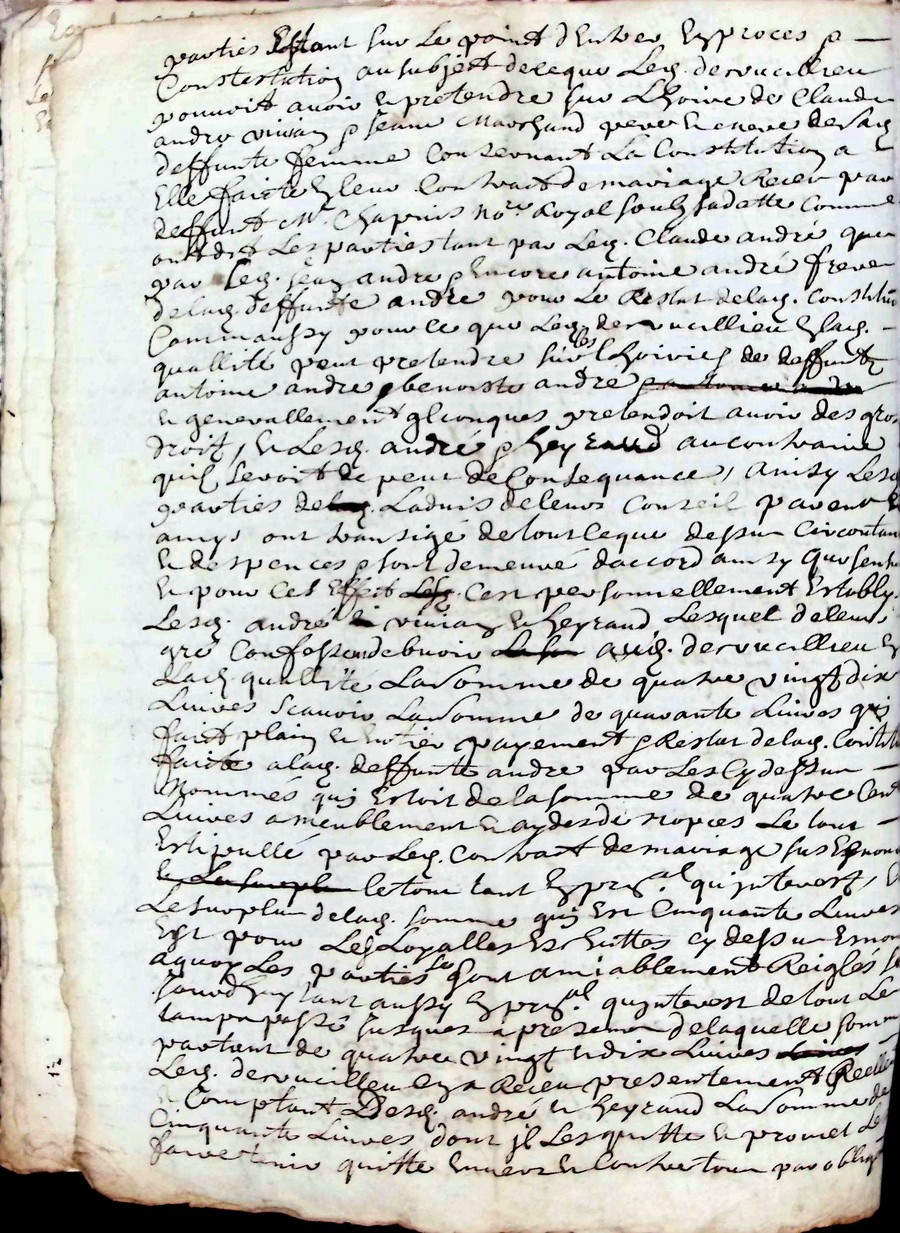 parties Estant sur Le point dEntrer En proces &
Contestation au subject de ce que Led. dervieullieu
pouvoit avoir et pretendre sur Lhoirie de Claude
andre vivian & Jeanne Marchand pere et mere de lad
deffunte femme Concernant La Constitution a
Elle faicte En leur Contract de mariage Receu par
deffunt Mr. Chapuis nore Royal soubz ladatte Comme
ont dit Les parties tant par Led. Claude andre que
par Led. Jean andre & Encore antoine andré frere
de lad. deffunte andre pour Le Restat de lad. Constitu
Comm aussy pour ce que Led. dervieullieu En lad.
quallité peut pretendre sur les lhoiries de deffuntz
antoine andre & benoiste andre
et generallement qlconques pretendoit avoir des gros
droitz, et Lesd. andré & heyraud au contraire
quil seroit de peut de Consequance, ainsy Lesd
parties de Ladvis de leurs Conseil parens et
amys ont transigé de tout ce que dessus Circonstan
et despences & sont demeuré daccord ainsy que sensu
Et pour Cet Effect Cest personnellement Estably
Lesd. andré vivian et heyraud Lesquel de leurs
gré Confessent debvoir aud. dervieullieu En
lad. quallité La somme de quatre vingt dix
Livres scavoir La somme de quarante Livres qui
faict plain et entier payement & Restat de lad. Constitu
faicte a lad. deffunte andre par Les Cy dessus
Nommés qui Estoit de la somme de quatre Cent
Livres ameublement et aydes de nopces Le tout
Estipullé par Led. Contract de mariage sus Enonce
le tout tant En pral. qu jnterest, Et
Le surplus de lad. somme qui Est Cinquante Livres
Est pour Les Loyalles Escheuttes cy dessus Enon
a quoy Les parties se sont amiablement Reiglés
jourdhuy tant aussy En pral qu jnterest de tout Le
tamps passé jusques a present de laquelle somme
partant de quatre vingt et dix Livres
Led. dervieullieu En a Receu presentement Reellem
Comptant Desd. andré et heyraud La somme de
Cinquante Livres dont jl Les quitte et promet Les
faire tenir quitte Envers et Contre tous par oblig